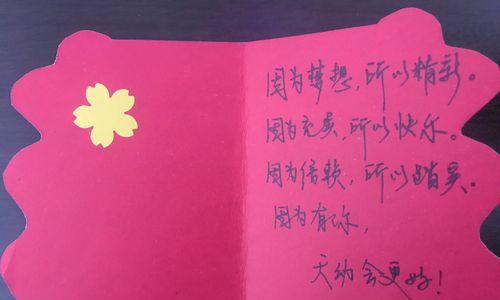 因为梦想，所以精彩。
因为充实，所以快乐。
因为信赖，所以踏实。
因为有你，
天纳会更好！